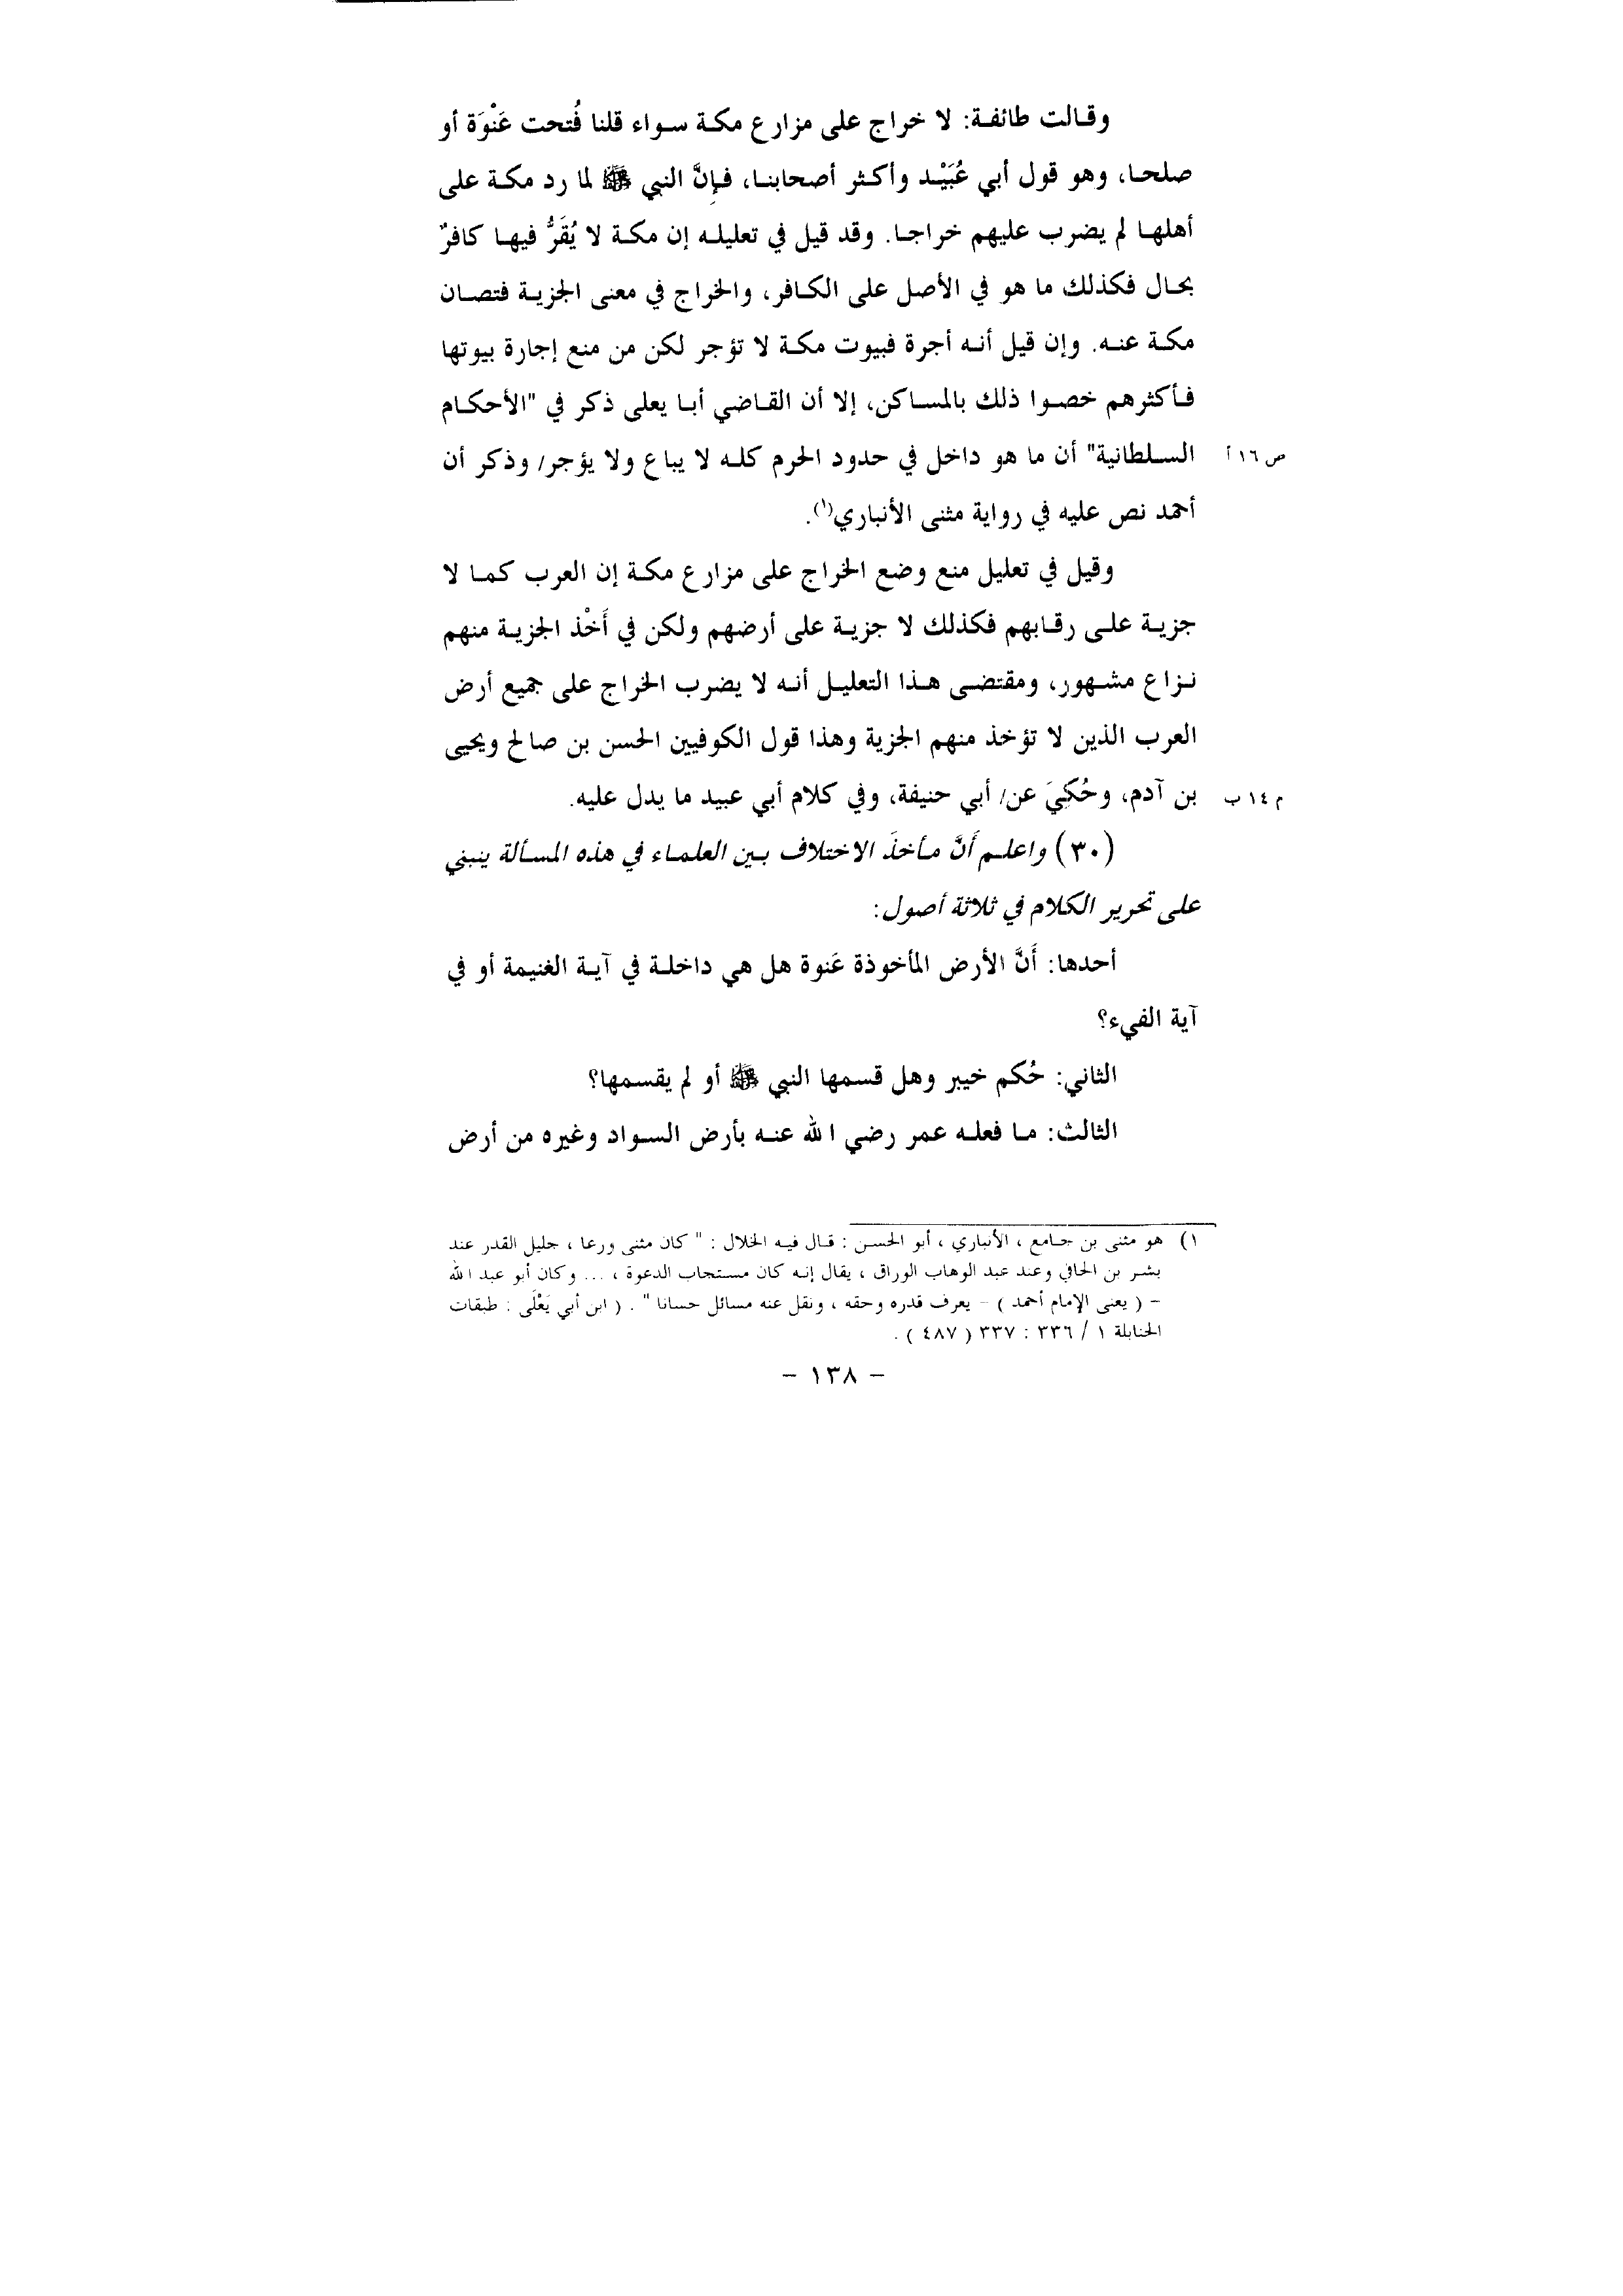 وقالت طائفة: لا خراج على مزارع مكة سواء قلنا فُتحت عَنْوَة أو
صلحا، وهو قول أبي عُبَيْد وأكثر أصحابنا، فإنَّ النبي ﷺ لما رد مكة على
أهلها لم يضرب عليهم خراجا. وقد قيل في تعليله إن مكة لا يُقَرُّ فيها كافرٌ
بحال فكذلك ما هو في الأصل على الكافر، والخراج في معنى الجزية فتصان
مكة عنه. وإن قيل أنه أجرة فبيوت مكة لا تؤجر لكن من منع إجارة بيوتها
فأكثرهم خصوا ذلك بالمساكن، إلا أن القاضي أبا يعلى ذكر في "الأحكام
السلطانية" أن ما هو داخل في حدود الحرم كله لا يباع ولا يؤجر/ وذكر أن
ص ١٦ أ
أحمد نص عليه في رواية مثنى الأنباري(١).
وقيل في تعليل منع وضع الخراج على مزارع مكة إن العرب كما لا
جزية على رقابهم فكذلك لا جزية على أرضهم ولكن في أَخْذ الجزية منهم
نزاع مشهور، ومقتضى هذا التعليل أنه لا يضرب الخراج على جميع أرض
العرب الذين لا تؤخذ منهم الجزية وهذا قول الكوفيين الحسن بن صالح ويحيى
بن آدم، وحُكِيَ عن/ أبي حنيفة، وفي كلام أبي عبيد ما يدل عليه.
م ١٤ ب
(٣٠) واعلم أَنَّ مأخذَ الاختلاف بين العلماء في هذه المسألة ينبني
على تحرير الكلام في ثلاثة أصول:
أحدها: أَنَّ الأرض المأخوذة عَنوة هل هي داخلة في آية الغنيمة أو في
آية الفيء؟
الثاني: حُكم خيبر وهل قسمها النبي ﷺ أو لم يقسمها؟
الثالث: ما فعله عمر رضي الله عنه بأرض السواد وغيره من أرض
١) هو مثنى بن جامع ، الأنباري ، أبو الحسن : قال فيه الخلال : " كان مثنى ورعا ، جليل القدر عند
بشر بن الحافي وعند عبد الوهاب الوراق ، يقال إنه كان مستجاب الدعوة ، ... وكان أبو عبد الله
- ( يعنى الإمام أحمد ) - يعرف قدره وحقه ، ونقل عنه مسائل حسانا " . ( ابن أبي يَعْلَى : طبقات
الحنابلة ١ / ٣٣٦ : ٣٣٧ ( ٤٨٧ ) .
- ١٣٨ -